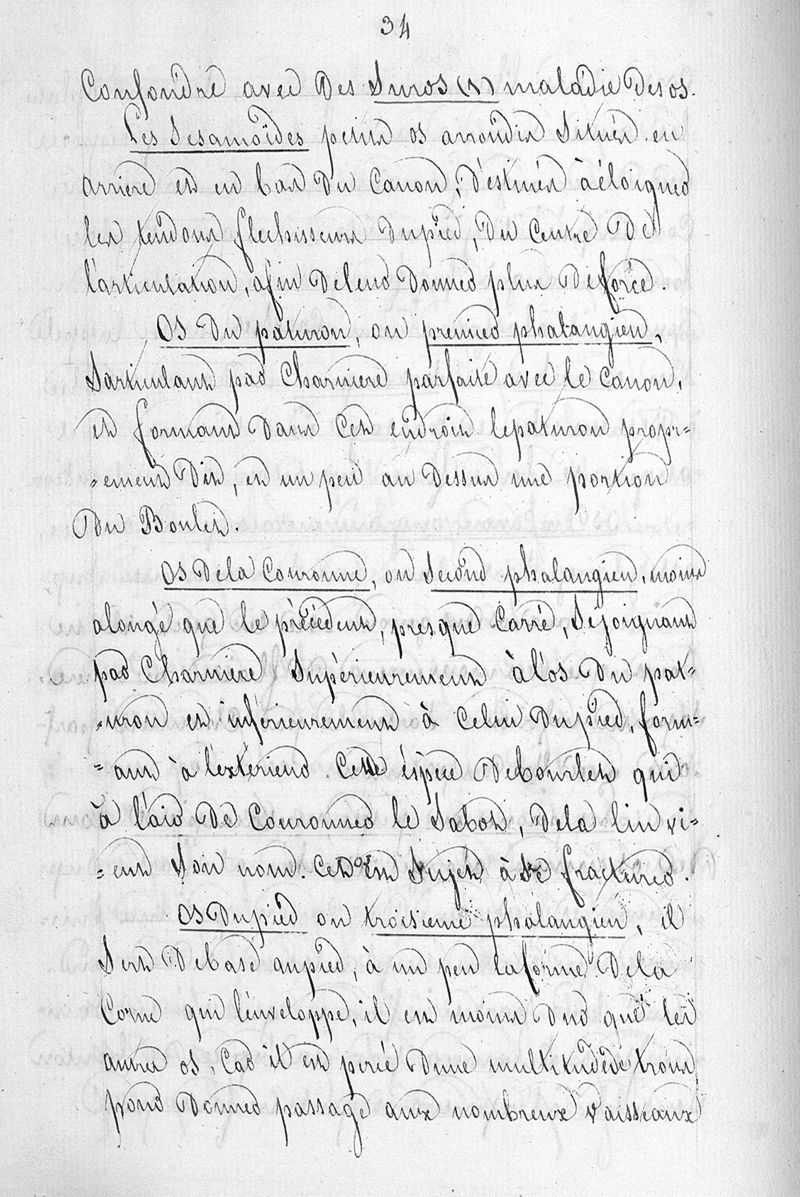 34
Confondre avec des Suros (x) maladie des os.
Les Sesamoïdes petits os arrondis Situés en
arrière et en bas du Canon; d'estinés à éloigner
les tendons fléchisseurs dupied, du Centre De
l'articulation, afin deleur donner plus de force.
OS du paturon, ou premier phalangien,
Sarticulant par Charniere parfaite avec le Canon,
et formant dans cet endroit lepaturon propr-
-ement Dit, et un peu au dessus une portion
du Boulet.
OS dela Couronne, ou Second phalangien, moins
alongé que le précédent, presque Carré, Sejoignant
par Charniere Supérieurement à l'os du pat-
-uron et inférieurement à Celui dupied, form-
-ant à l'extérieur. Cette éspèce debourlet qui
à l'air de Couronner le Sabot, dela lui vi-
-ent Son nom. Cet os est Sujet à Se fracturer.
OS Dupied ou troisieme phalangien, il
Sert debase aupied, à un peu laforme dela
Corne qui l'enveloppe, il est moins dur que les
autres os, Car il est percé dune multitudede trous
pour donner passage aux nombreux vaisseaux